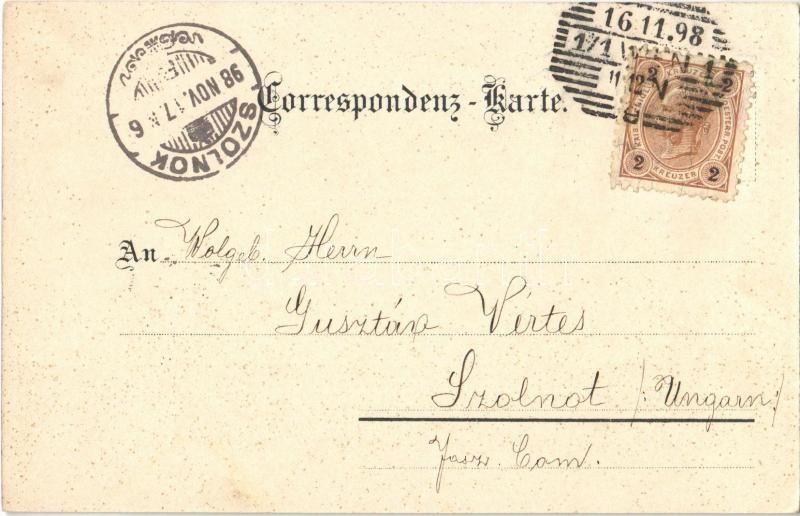 16.11.98
1/1 WIEN 1
SZOLNOK
98 NOV. 17.
6
Correspondenz-Karte.
2 2
KREUZER
2 2
An Wolgeb. Herrn
Gusztáv Vértes
Szolnot /: Ungarn :/
Jasz. Com.